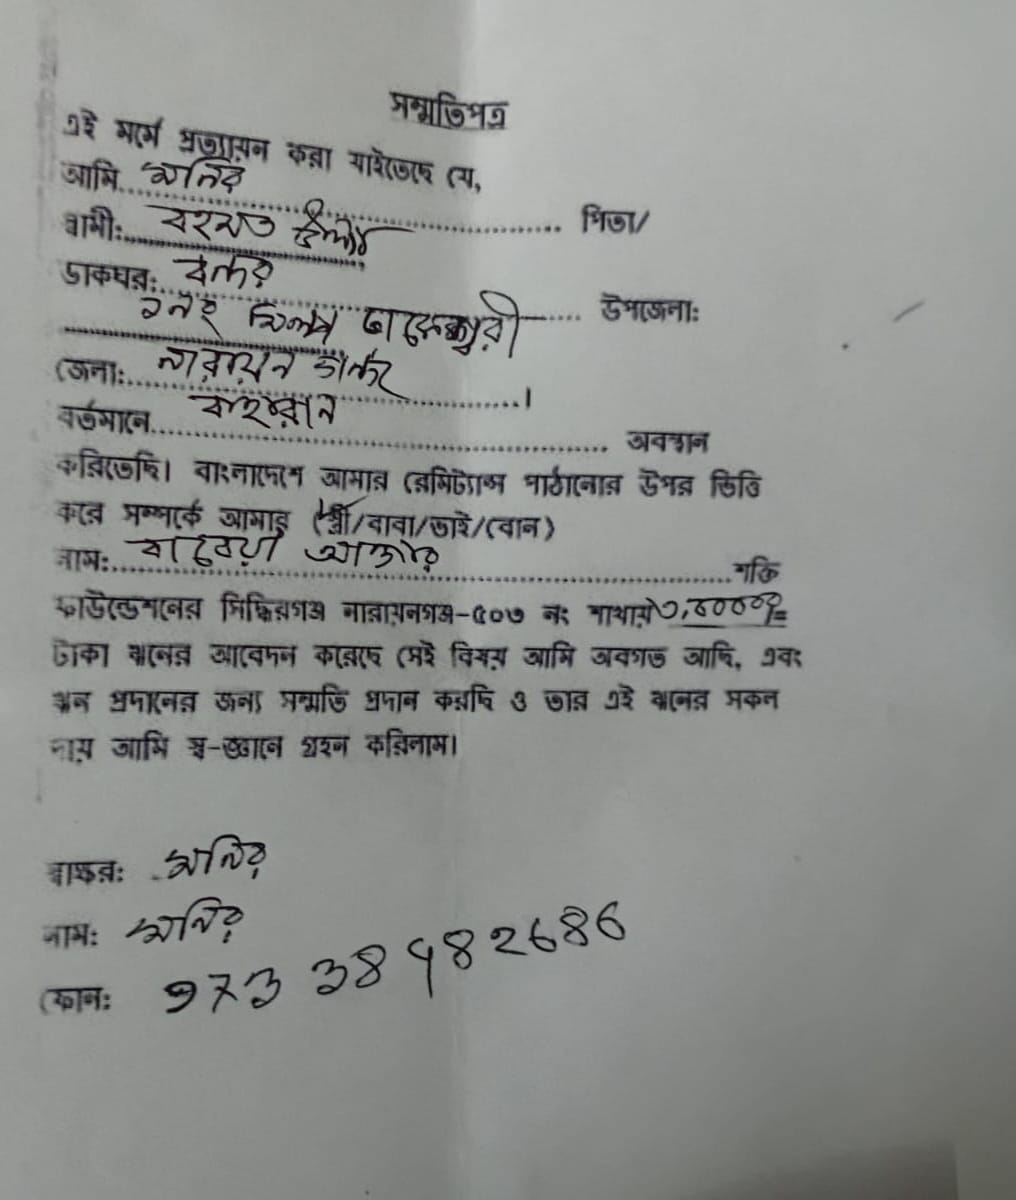 সম্মতিপত্র
এই মর্মে প্রত্যায়ন করা যাইতেছে যে,
আমি মনির
পিতা/
স্বামী: রহমত উল্যাহ
ডাকঘর: বন্দর
উপজেলা:
১নং ঢাকেশ্বরী
জেলা: নারায়ন গন্জ ।
বর্তমানে বাহরাইন অবস্থান
করিতেছি। বাংলাদেশে আমার রেমিট্যান্স পাঠানোর উপর ভিত্তি
করে সম্পর্কে আমার (স্ত্রী/বাবা/ভাই/বোন)
নাম: রাবেয়া আক্তার শক্তি
ফাউন্ডেশনের সিদ্ধিরগঞ্জ নারায়নগঞ্জ-৫০৩ নং শাখায়
টাকা ঋনের আবেদন করেছে সেই বিষয় আমি অবগত আছি, এবং
ঋন প্রদানের জন্য সম্মতি প্রদান করছি ও তার এই ঋনের সকল
দায় আমি স্ব-জ্ঞানে গ্রহন করিলাম।
স্বাক্ষর: মনির
নাম: মনির
ফোন: 973 38482686